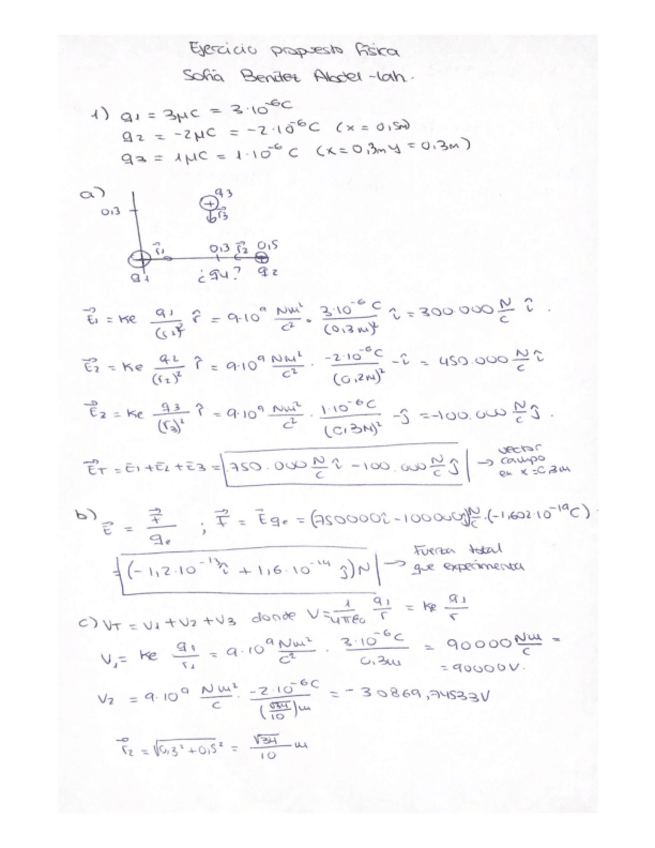 Ejercicio propuesto física
Sofía Benítez Abdel-lah.
1) q1 = 3μC = 3·10⁻⁶C
q2 = -2μC = -2·10⁻⁶C (x = 0,5m)
q3 = 1μC = 1·10⁻⁶ C (x = 0,3m y = 0,3m)
a)
q3
0,3
+
r⃗3
r⃗1 0,3 r⃗2 0,5
q1 ¿q4? q2
E⃗1 = Ke q1/(r1)² r̂ = 9·10⁹ Nm²/C² · 3·10⁻⁶ C/(0,3m)² î = 300 000 N/C î.
E⃗2 = Ke q2/(r2)² r̂ = 9·10⁹ Nm²/C² · -2·10⁻⁶C/(0,2m)² -î = 450.000 N/C î
E⃗3 = Ke q3/(r3)² r̂ = 9·10⁹ Nm²/C² · 1·10⁻⁶C/(0,3m)² -ĵ = -100.000 N/C ĵ.
E⃗T = E1 + E2 + E3 = 750.000 N/C î - 100.000 N/C ĵ → vector campo en x=0,3m
b) E⃗ = F⃗/qe ; F⃗ = E⃗qe = (750000î - 100000ĵ) N/C · (-1,602·10⁻¹⁹C)
= (-1,2·10⁻¹³î + 1,6·10⁻¹⁴ ĵ)N → Fuerza total que experimenta
c) VT = V1 + V2 + V3 donde V = 1/4πε0 q1/r = Ke q1/r
V1 = Ke q1/r1 = 9·10⁹ Nm²/C² · 3·10⁻⁶C/0,3m = 90000 Nm/C =
= 90000V.
V2 = 9·10⁹ Nm²/C · -2·10⁻⁶C/(√34/10)m = -30869,74533V
r⃗2 = √0,3² + 0,5² = √34/10 m